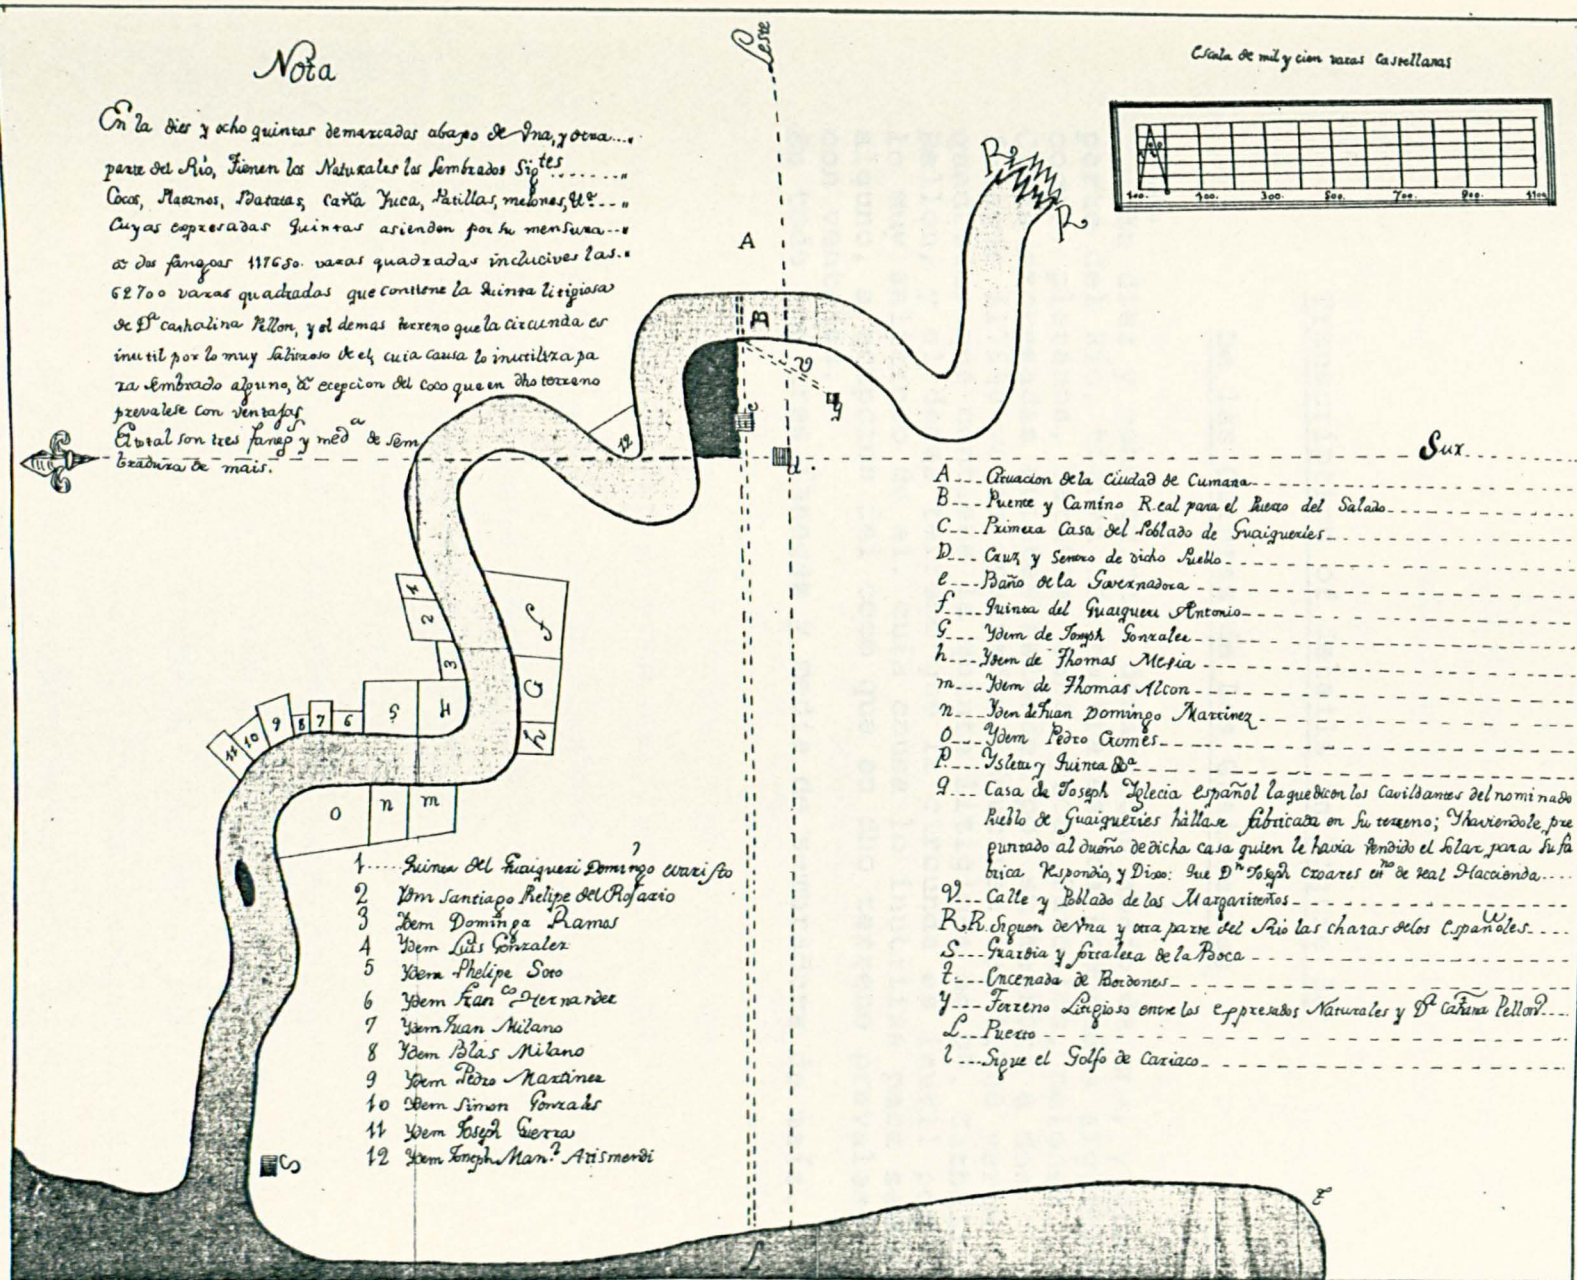 Nota
En la dies y ocho quintas demarcadas abaxo de Vna, y otra....
parte del Rio, Tienen los Naturales los Sembrados Sig.tes........
Cocos, Platanos, Batatas, Caña Yuca, Patillas, melones, &.a....
Cuyas expresadas Quintas asienden por su mensura...
a dos fanegas 117650. varas quadradas inclucives las..
62700 varas quadradas que contiene la Quinta litigiosa
de D.a cathalina Pellon, y el demas terreno que la circunda es
inutil por lo muy Salitroso de el, cuia causa lo inutiliza pa
ra Sembrado alguno, a ecepcion del Coco que en dho terreno
prevalese con ventajas
El total son tres faneg.s y med.a de Sem
bradura de mais.
Leste
Escala de mil y cien varas Castellanas
100. 100. 300. 500. 700. 900. 1100
R
R
A
B
V
q
C
d.
Sur
12
1
2
3
4
5
6
7
8
9
10
11
f
G
h
m
n
O
S
L
t
A Cituacion de la Ciudad de Cumana
B Puente y Camino Real para el Puerto del Salado
C Primera Casa del Poblado de Guaigueries
D Cruz y Senero de dicho Pueblo
e Baño de la Governadora
f Quinta del Guaigueri Antonio
G Ydem de Joseph Gonzales
h Ydem de Thomas Mesia
m Ydem de Thomas Alcon
n Yden de Juan Domingo Martinez
O Ydem Pedro Gomes
P. Ysleta y Quinta
q Casa de Joseph Yglecia español la que dicen los Cavildantes del nominado
Pueblo de Guaigueries hállase fabricada en Su terreno; Y haviendole pre
guntado al dueño de dicha casa quien le havia Vendido el Solar para Su fa
brica Respondio, y Dixo: Que D.n Joseph de real Haccienda....
V Calle y Poblado de los Margariteños
R.R. Siguen de Vna y otra parte del Rio las charas de los Españoles
S Guardia y fortalesa de la Boca
t Encenada de Bordones
y Terreno Litigioso entre los expresados Naturales y D.a Cat.ina Pellon
L Puerto
l Sigue el Golfo de Cariaco
1 Quinta del Guaigueri Domingo evaristo
2 Ydm Santiago Phelipe del Rosario
3 Ydem Dominga Ramos
4 Ydem Luis Gonzalez
5 Ydem Phelipe Soto
6 Ydem Fran.co Hernandez
7 Ydem Juan Milano
8 Ydem Blas Milano
9 Ydem Pedro Martinez
10 Ydem Simon Gonzales
11 Ydem Joseph Guerra
12 Ydem Joseph Man.l Arismendi